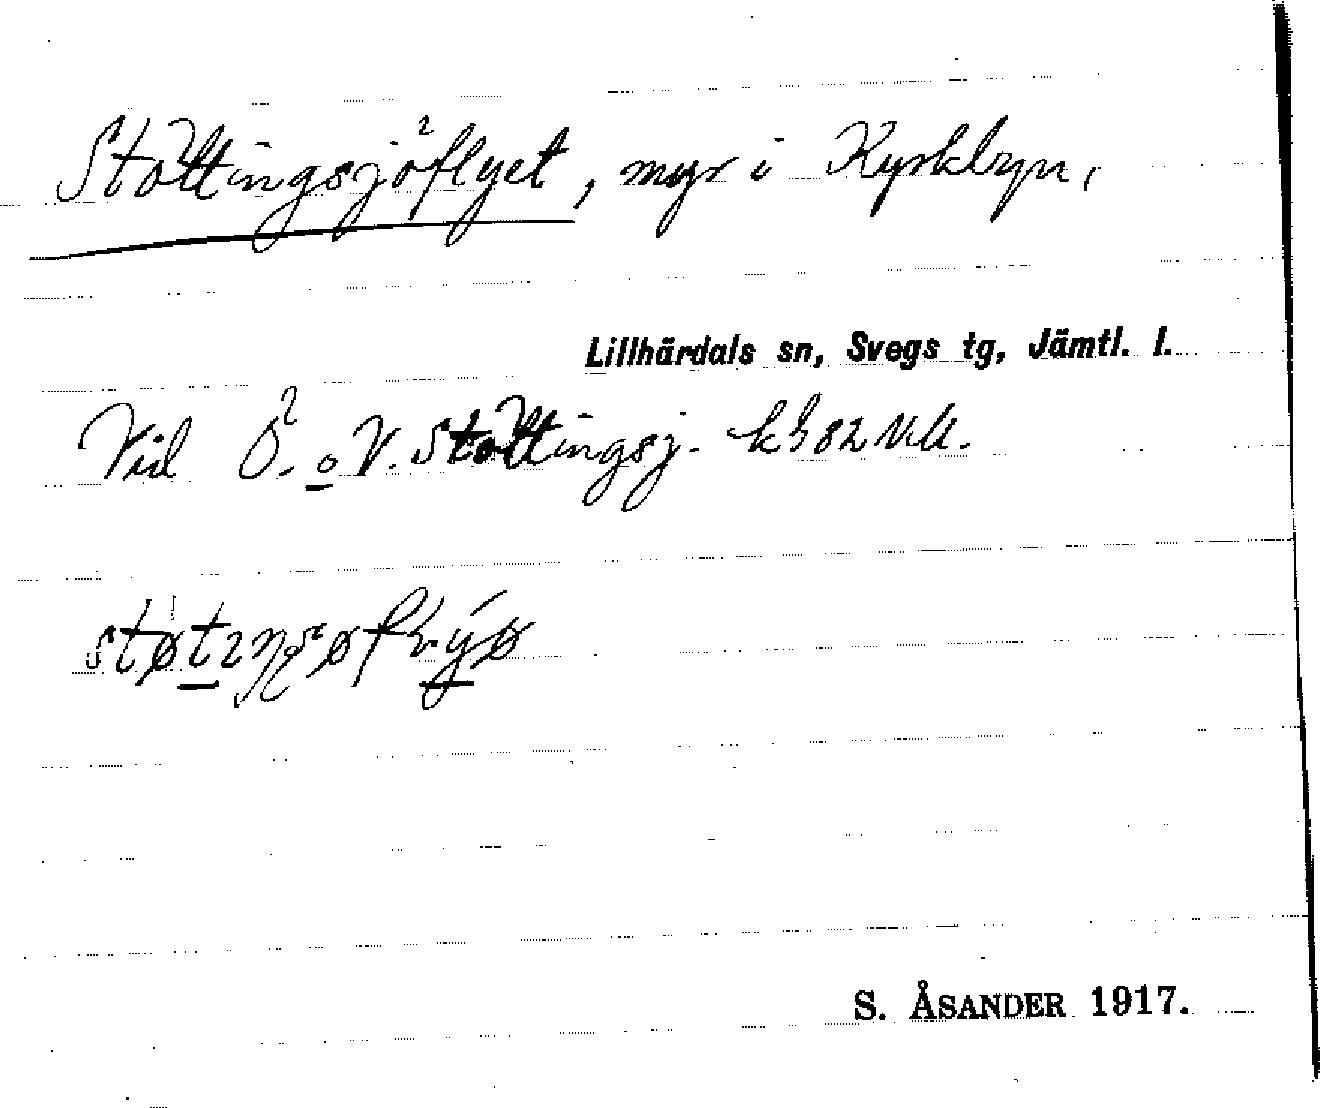 Stöttingsjöflyet, myr i Kyrkbyn,
Lillhärdals sn, Svegs tg, Jämtl. l.
Vid Ö. o V. Stöttingsj. 82
S. ÅSANDER 1917.